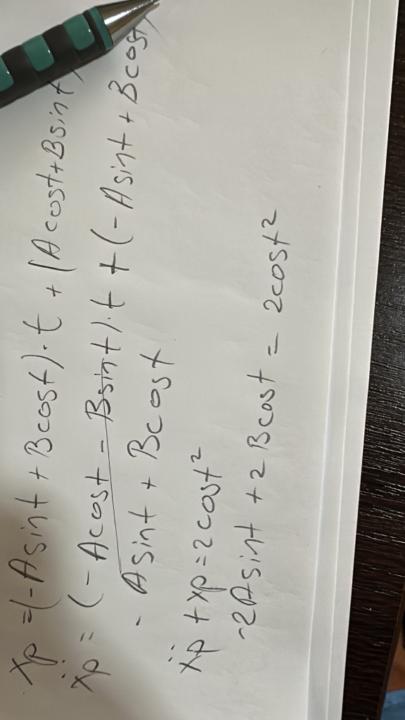 ẋp = (-Asint + Bcost)·t + (Acost+Bsint
ẍp = (-Acost - Bsint)·t + (-Asint + Bcost
- Asint + Bcost
ẍp + xp = 2cost²
-2Asint + 2Bcost = 2cost²